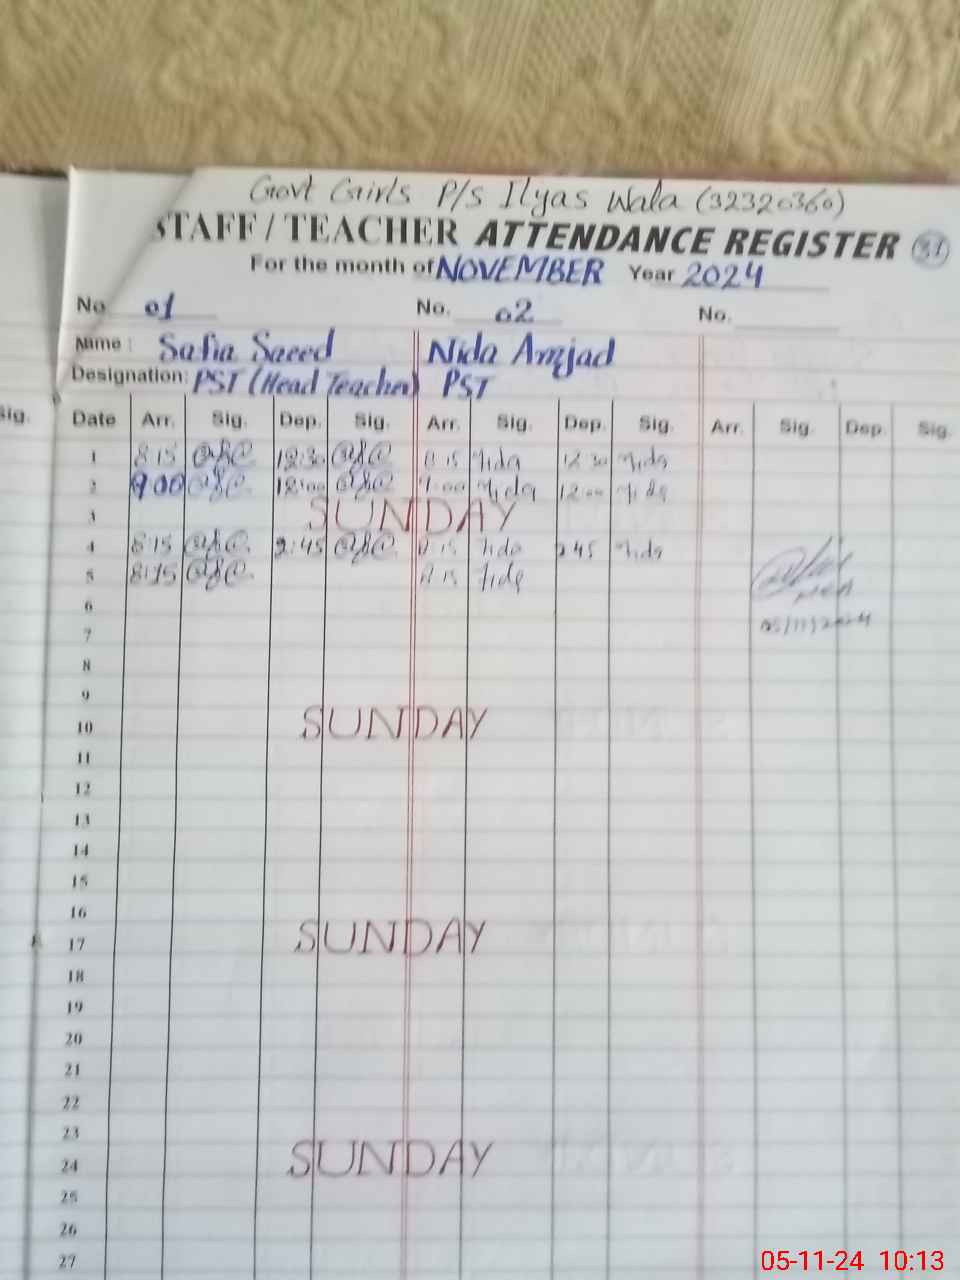 Govt Gairls P/S Ilyas Wala (32320360)
STAFF / TEACHER ATTENDANCE REGISTER 31
For the month of NOVEMBER Year 2024
No. 01 No. 02 No.
Name : Safia Saeed Nida Amjad
Designation: PST (Head Teacher) PST
Sig. Date Arr. Sig. Dep. Sig. Arr. Sig. Dep. Sig. Arr. Sig. Dep. Sig.
1 8:15 12:30 8:15 Nida 12:30 Nida
2 9:00 12:00 9:00 Nida 12:00 Nida
3 SUNDAY
4 8:15 2:45 8:15 Nida 2:45 Nida
5 8:15 8:15 Nida
6
05/11/2024
7
8
9
10 SUNDAY
11
12
13
14
15
16
17 SUNDAY
18
19
20
21
22
23
24 SUNDAY
25
26
27
05-11-24 10:13